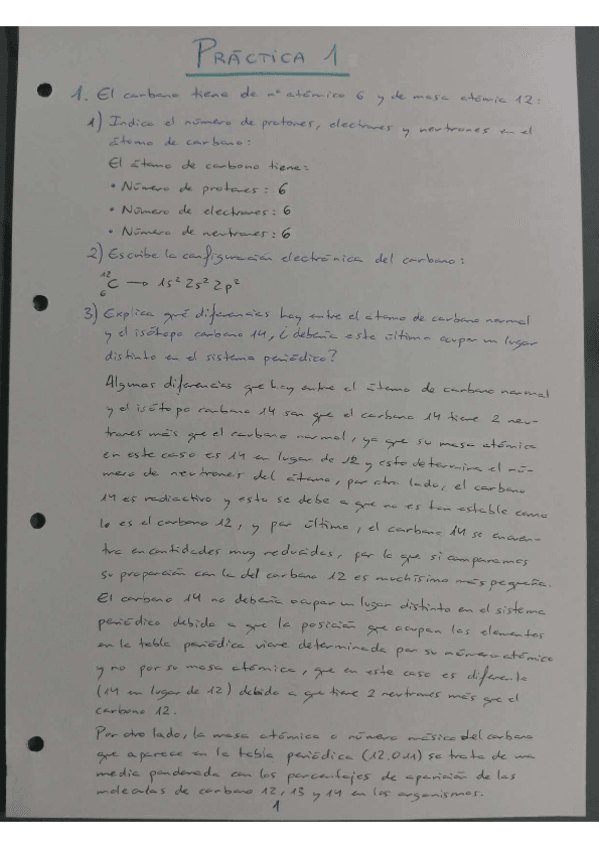 PRÁCTICA 1
1. El carbono tiene de nº atómico 6 y de masa atómica 12:
1) Indica el número de protones, electrones y neutrones en el
átomo de carbono:
El átomo de carbono tiene:
• Número de protones: 6
• Número de electrones: 6
• Número de neutrones: 6
2) Escribe la configuración electrónica del carbono:
¹²₆C → 1s² 2s² 2p²
3) Explica qué diferencias hay entre el átomo de carbono normal
y el isótopo carbono 14, ¿debería este último ocupar un lugar
distinto en el sistema periódico?
Algunas diferencias que hay entre el átomo de carbono normal
y el isótopo carbono 14 son que el carbono 14 tiene 2 neu-
trones más que el carbono normal, ya que su masa atómica
en este caso es 14 en lugar de 12 y esto determina el nú-
mero de neutrones del átomo, por otro lado, el carbono
14 es radiactivo y esto se debe a que no es tan estable como
lo es el carbono 12, y por último, el carbono 14 se encuen-
tra en cantidades muy reducidas, por lo que si comparamos
su proporción con la del carbono 12 es muchísimo más pequeña.
El carbono 14 no debería ocupar un lugar distinto en el sistema
periódico debido a que la posición que ocupan los elementos
en la tabla periódica viene determinada por su número atómico
y no por su masa atómica, que en este caso es diferente
(14 en lugar de 12) debido a que tiene 2 neutrones más que el
carbono 12.
Por otro lado, la masa atómica o número másico del carbono
que aparece en la tabla periódica (12.011) se trata de una
media ponderada con los porcentajes de aparición de las
moléculas de carbono 12, 13 y 14 en los organismos.
1